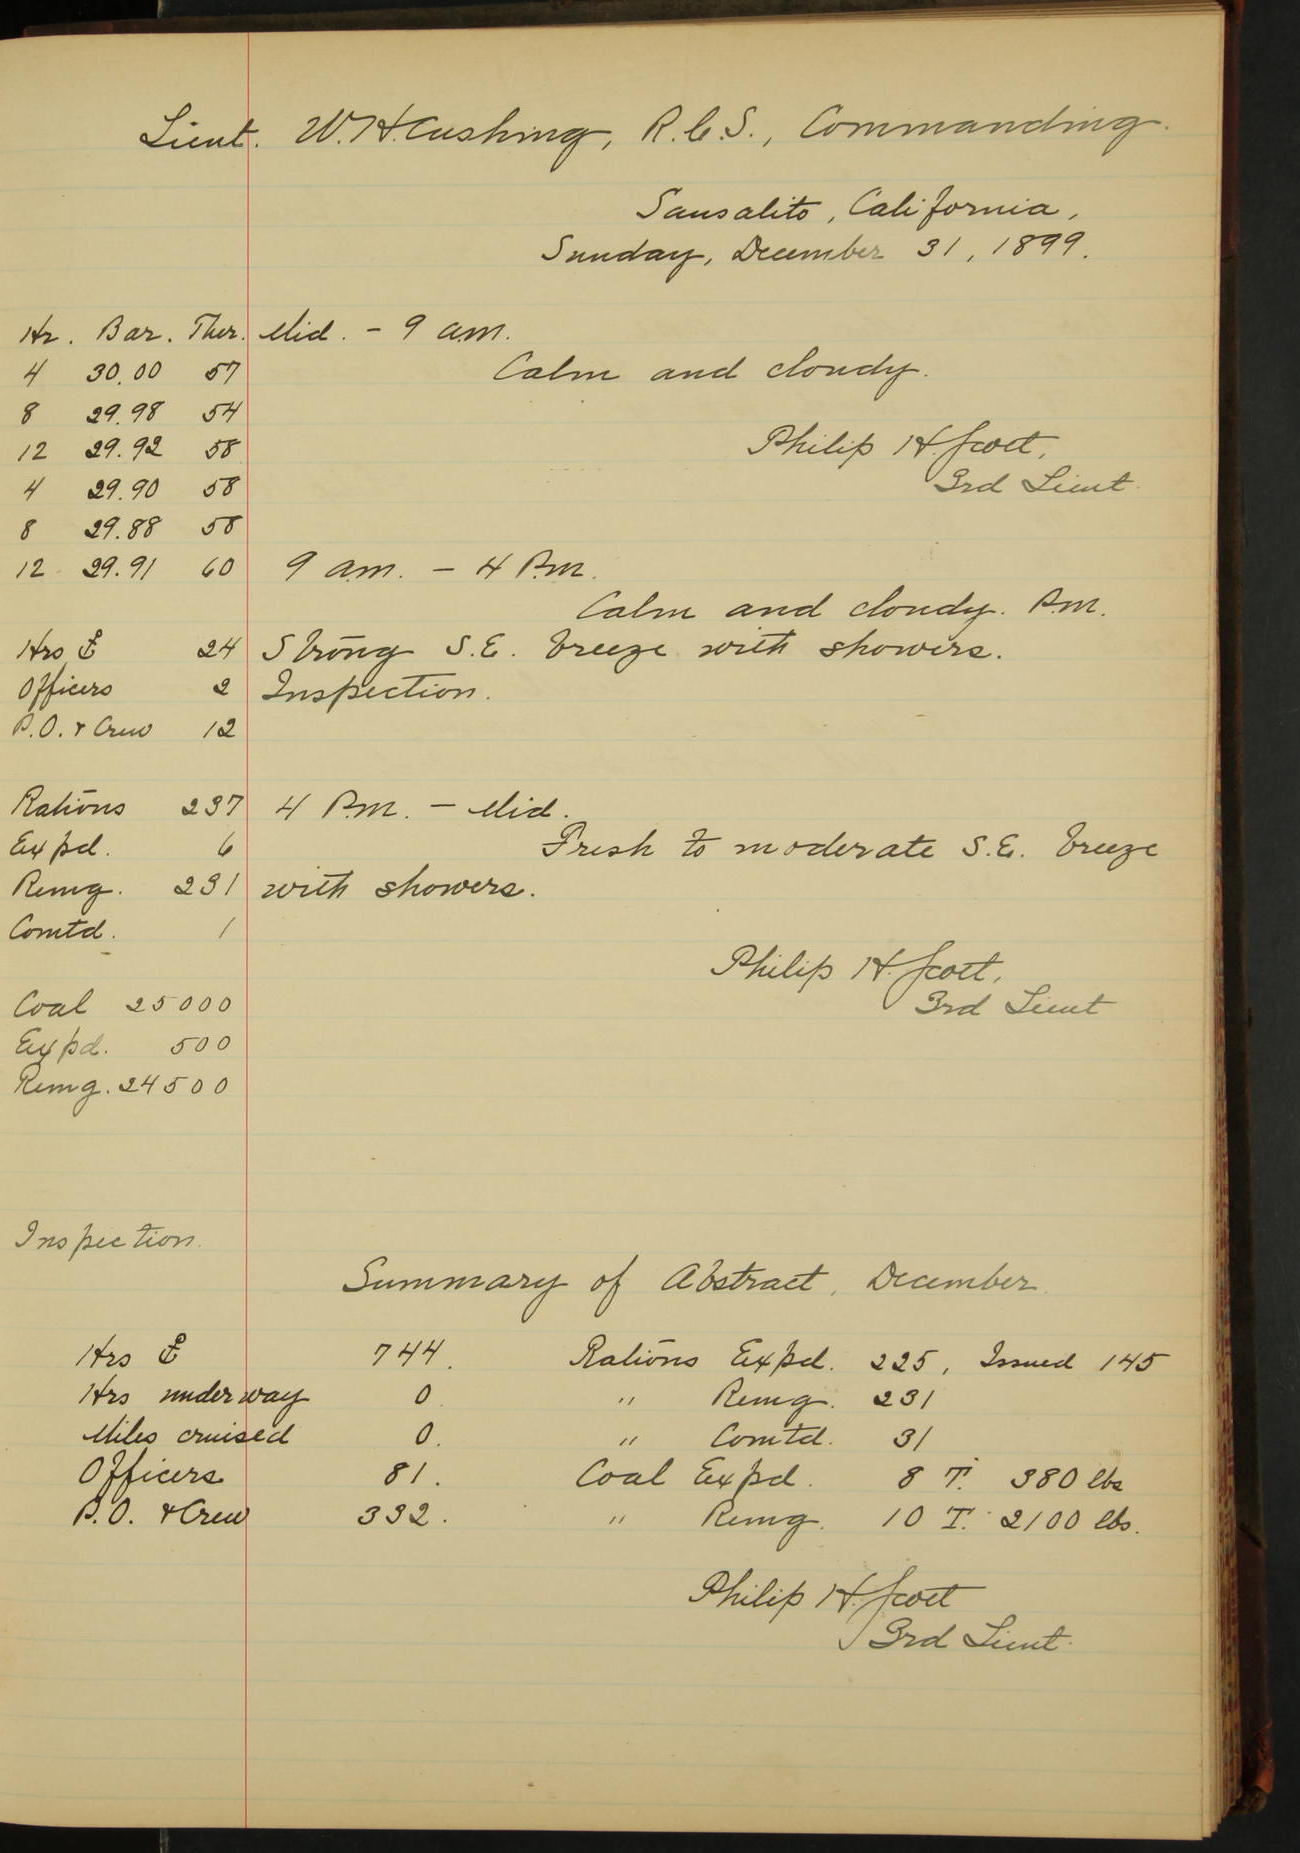 Lieut. W. H. Cushing, R.C.S., Commanding.
Sausalito, California,
Sunday, December 31, 1899.
Hr. Bar. Ther. Mid. - 9 a.m.
4 30.00 57 Calm and cloudy.
8 29.98 54
12 29.92 58 Philip H. Scott,
4 29.90 58 3rd Lieut.
8 29.88 58
12 29.91 60 9 a.m. - 4 P.m.
Calm and cloudy. P.m.
Hrs ⚓ 24 Strong S.E. breeze with showers.
Officers 2 Inspection.
P.O. & Crew 12
Rations 237 4 P.m. - Mid.
Expd. 6 Fresh to moderate S.E. breeze
Remg. 231 with showers.
Comtd. 1
Philip H. Scott,
Coal 25000 3rd Lieut
Expd. 500
Remg. 24500
Inspection.
Summary of Abstract, December.
Hrs ⚓ 744. Rations Expd. 225, Issued 145
Hrs underway 0. " Remg. 231
Miles cruised 0. " Comtd. 31
Officers 81. Coal Expd. 8 T. 380 lbs
P.O. & Crew 332. " Remg. 10 T. 2100 lbs.
Philip H. Scott
3rd Lieut.